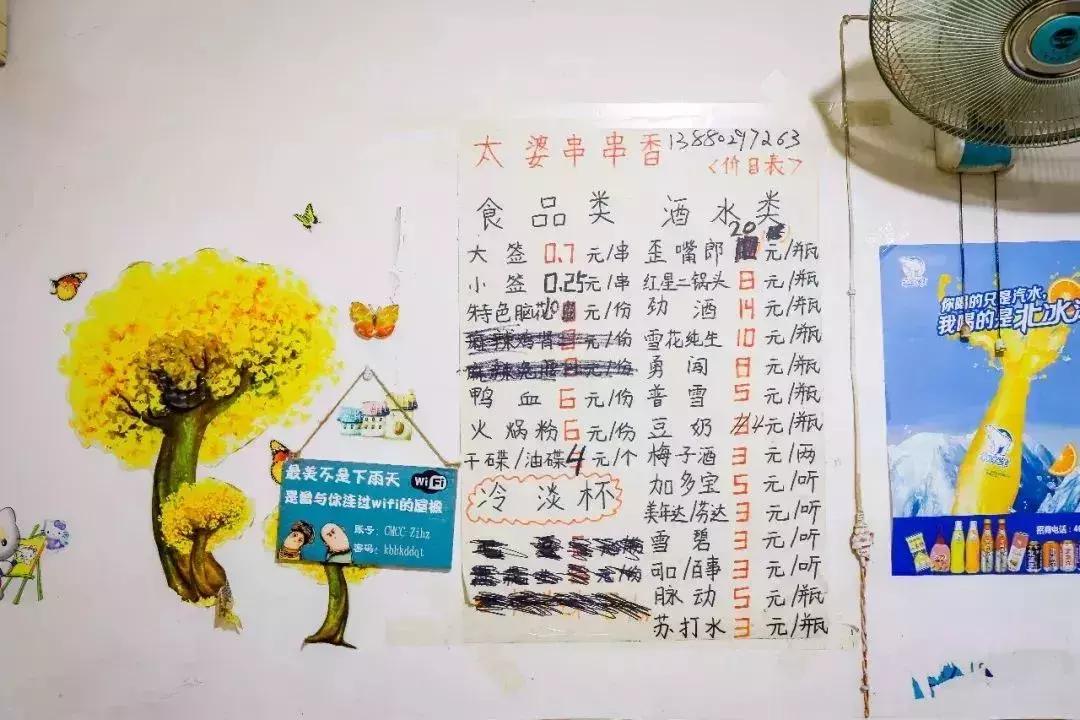 太婆串串香 13880297263
<价目表>
食品类
大签 0.7 元/串
小签 0.25元/串
特色脑花 元/份
鸭血 6 元/份
火锅粉 6 元/份
干碟/油碟 4 元/个
冷淡杯
酒水类
歪嘴郎 20 元/瓶
红星二锅头 8 元/瓶
劲酒 14 元/瓶
雪花纯生 10 元/瓶
勇闯 8 元/瓶
普雪 5 元/瓶
豆奶 4 元/瓶
梅子酒 3 元/两
加多宝 5 元/听
美年达/芬达 3 元/听
雪碧 3 元/听
可口/百事 3 元/听
脉动 5 元/瓶
苏打水 3 元/瓶
最美不是下雨天
WiFi
是曾与你连过wifi的屋檐
账号: CMCC Zihz
密码: kbhkddqt
你喝的只是汽水,
我喝的是北冰洋
招商电话: